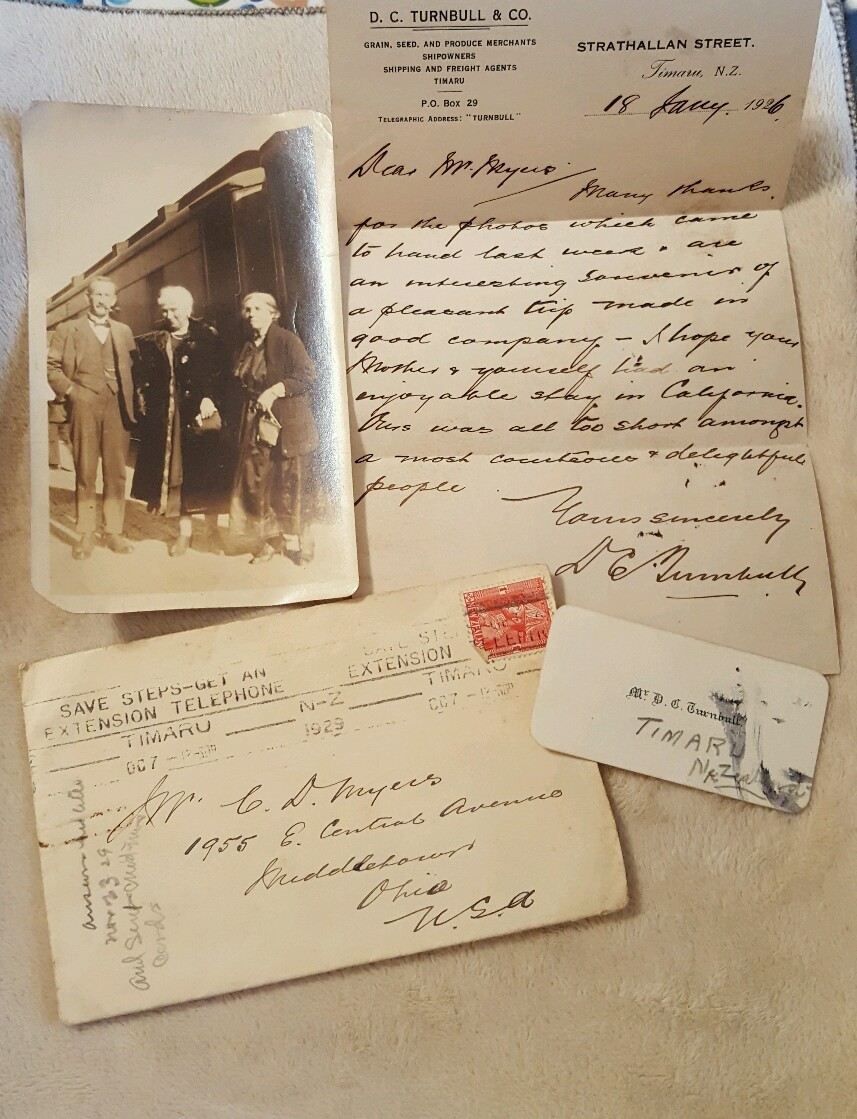 D. C. TURNBULL & CO.
GRAIN, SEED, AND PRODUCE MERCHANTS
SHIPOWNERS
SHIPPING AND FREIGHT AGENTS
TIMARU
P.O. Box 29
TELEGRAPHIC ADDRESS: "TURNBULL"
STRATHALLAN STREET.
Timaru, N.Z.
18 Jany. 1926.
Dear Mr. Myers
Many thanks
for the photos which came
to hand last week & are
an interesting souvenir of
a pleasant trip made in
good company – I hope your
Mother & yourself had an
enjoyable stay in California.
Ours was all too short amongst
a most courteous & delightful
people
Yours sincerely
D C Turnbull
SAVE STEPS-GET AN
EXTENSION TELEPHONE
TIMARU
OC7
N-Z
1929
SAVE STE
EXTENSION
TIMARU
OC7
Mr. C. D. Myers
1955 E. Central Avenue
Middletown
Ohio
U.S.A
nov 23 29
and sent
cards
Mr. D. C. Turnbull
TIMARU
N. Zealand